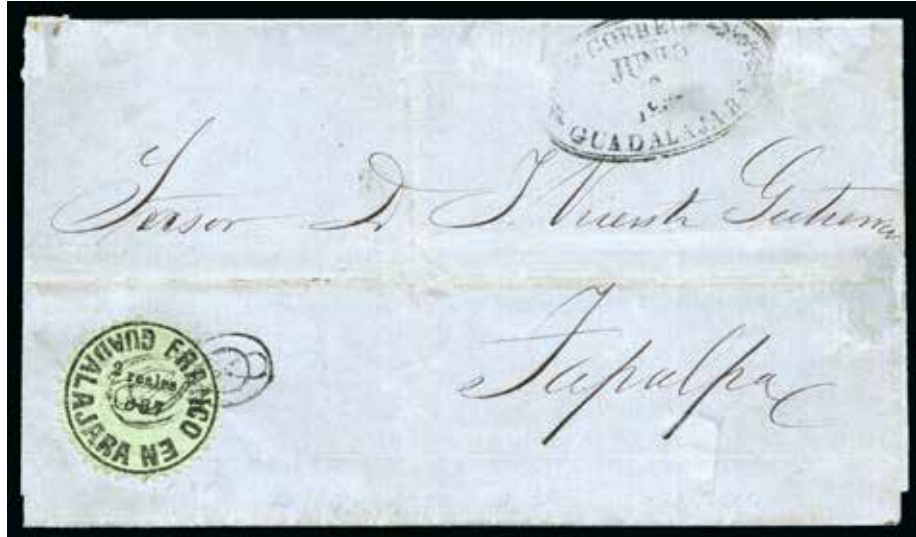 CORREOS
JUNIO
GUADALAJARA
Señor D. J. Vicente Gutierrez
Tapalpa
FRANCO EN GUADALAJARA
2
reales
1867